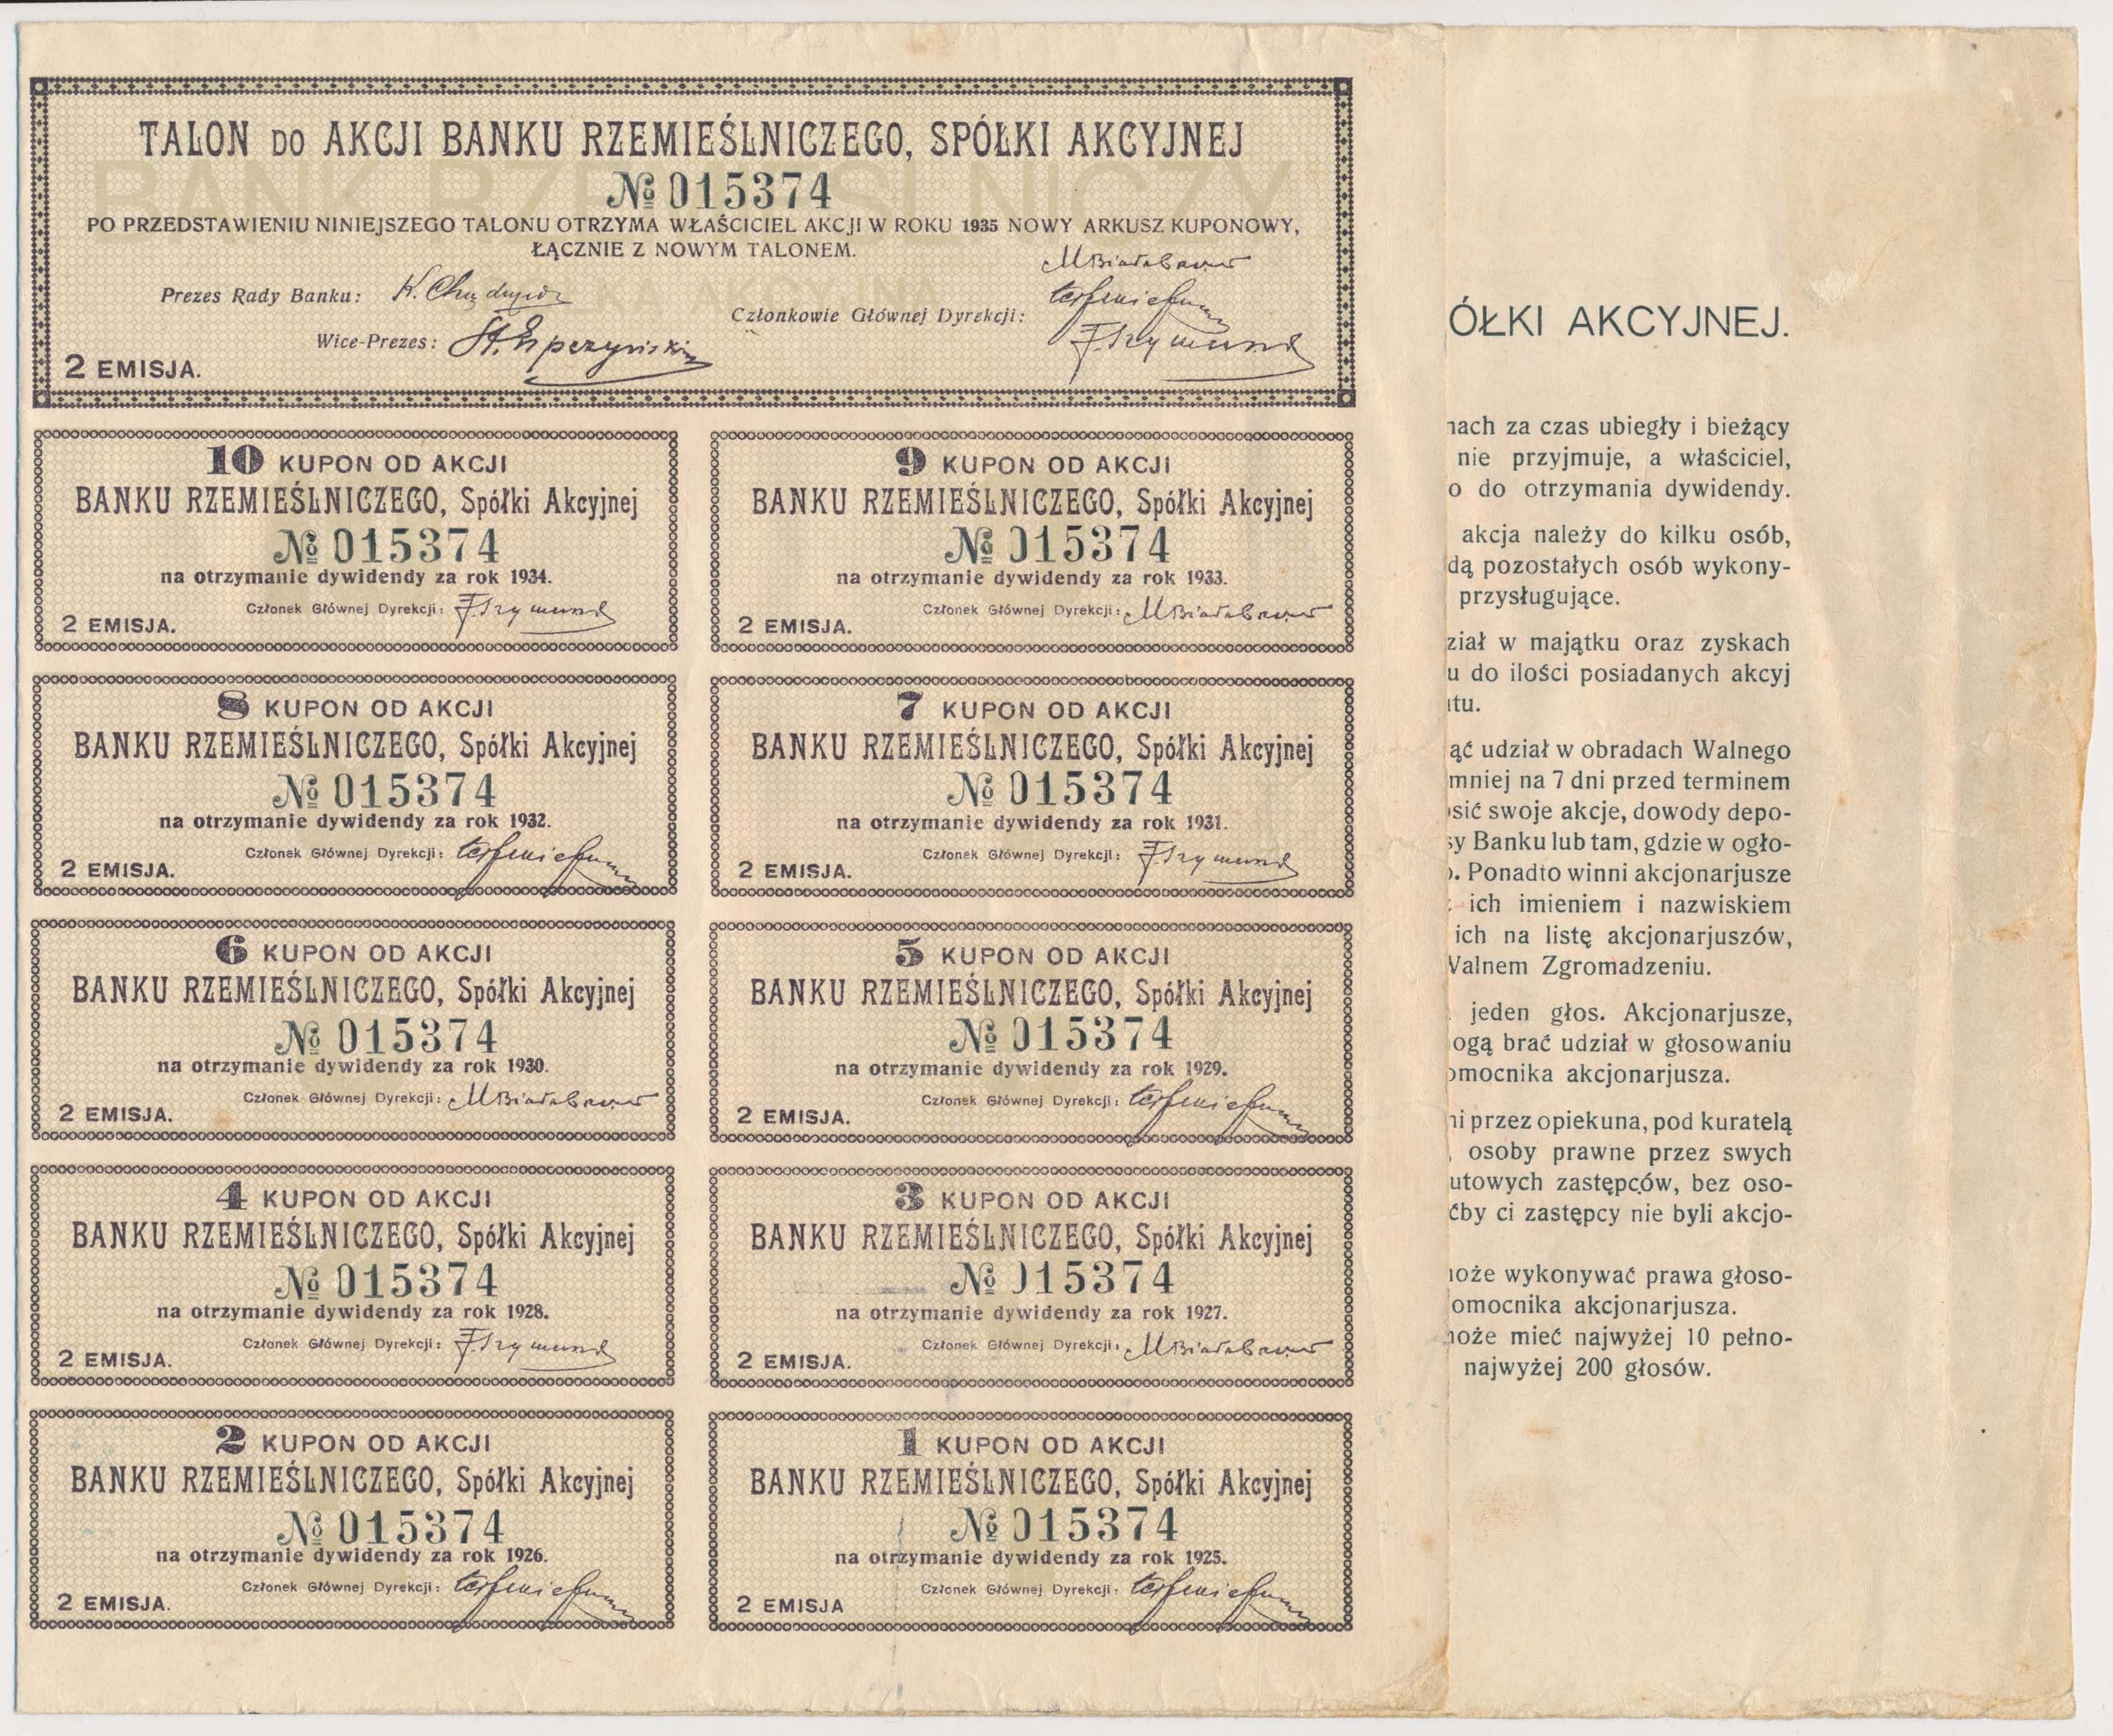 TALON DO AKCJI BANKU RZEMIEŚLNICZEGO, SPÓŁKI AKCYJNEJ
BANK RZEMIEŚLNICZY
№ 015374
PO PRZEDSTAWIENIU NINIEJSZEGO TALONU OTRZYMA WŁAŚCICIEL AKCJI W ROKU 1935 NOWY ARKUSZ KUPONOWY,
ŁĄCZNIE Z NOWYM TALONEM.
Prezes Rady Banku:
Wice-Prezes:
Członkowie Głównej Dyrekcji:
2 EMISJA.
10 KUPON OD AKCJI
BANKU RZEMIEŚLNICZEGO, Spółki Akcyjnej
№ 015374
na otrzymanie dywidendy za rok 1934.
Członek Głównej Dyrekcji:
2 EMISJA.
9 KUPON OD AKCJI
BANKU RZEMIEŚLNICZEGO, Spółki Akcyjnej
№ 015374
na otrzymanie dywidendy za rok 1933.
Członek Głównej Dyrekcji:
2 EMISJA.
8 KUPON OD AKCJI
BANKU RZEMIEŚLNICZEGO, Spółki Akcyjnej
№ 015374
na otrzymanie dywidendy za rok 1932.
Członek Głównej Dyrekcji:
2 EMISJA.
7 KUPON OD AKCJI
BANKU RZEMIEŚLNICZEGO, Spółki Akcyjnej
№ 015374
na otrzymanie dywidendy za rok 1931.
Członek Głównej Dyrekcji:
2 EMISJA.
6 KUPON OD AKCJI
BANKU RZEMIEŚLNICZEGO, Spółki Akcyjnej
№ 015374
na otrzymanie dywidendy za rok 1930.
Członek Głównej Dyrekcji:
2 EMISJA.
5 KUPON OD AKCJI
BANKU RZEMIEŚLNICZEGO, Spółki Akcyjnej
№ 015374
na otrzymanie dywidendy za rok 1929.
Członek Głównej Dyrekcji:
2 EMISJA.
4 KUPON OD AKCJI
BANKU RZEMIEŚLNICZEGO, Spółki Akcyjnej
№ 015374
na otrzymanie dywidendy za rok 1928.
Członek Głównej Dyrekcji:
2 EMISJA.
3 KUPON OD AKCJI
BANKU RZEMIEŚLNICZEGO, Spółki Akcyjnej
№ 015374
na otrzymanie dywidendy za rok 1927.
Członek Głównej Dyrekcji:
2 EMISJA.
2 KUPON OD AKCJI
BANKU RZEMIEŚLNICZEGO, Spółki Akcyjnej
№ 015374
na otrzymanie dywidendy za rok 1926.
Członek Głównej Dyrekcji:
2 EMISJA.
1 KUPON OD AKCJI
BANKU RZEMIEŚLNICZEGO, Spółki Akcyjnej
№ 015374
na otrzymanie dywidendy za rok 1925.
Członek Głównej Dyrekcji:
2 EMISJA
ÓŁKI AKCYJNEJ.
nach za czas ubiegły i bieżący
nie przyjmuje, a właściciel,
o do otrzymania dywidendy.
akcja należy do kilku osób,
dą pozostałych osób wykony-
przysługujące.
ział w majątku oraz zyskach
u do ilości posiadanych akcyj
tu.
ąć udział w obradach Walnego
mniej na 7 dni przed terminem
sić swoje akcje, dowody depo-
sy Banku lub tam, gdzie w ogło-
. Ponadto winni akcjonarjusze
ich imieniem i nazwiskiem
ich na listę akcjonarjuszów,
Walnem Zgromadzeniu.
jeden głos. Akcjonarjusze,
ogą brać udział w głosowaniu
omocnika akcjonarjusza.
ni przez opiekuna, pod kuratelą
, osoby prawne przez swych
utowych zastępców, bez oso-
ćby ci zastępcy nie byli akcjo-
oże wykonywać prawa głoso-
omocnika akcjonarjusza.
oże mieć najwyżej 10 pełno-
najwyżej 200 głosów.